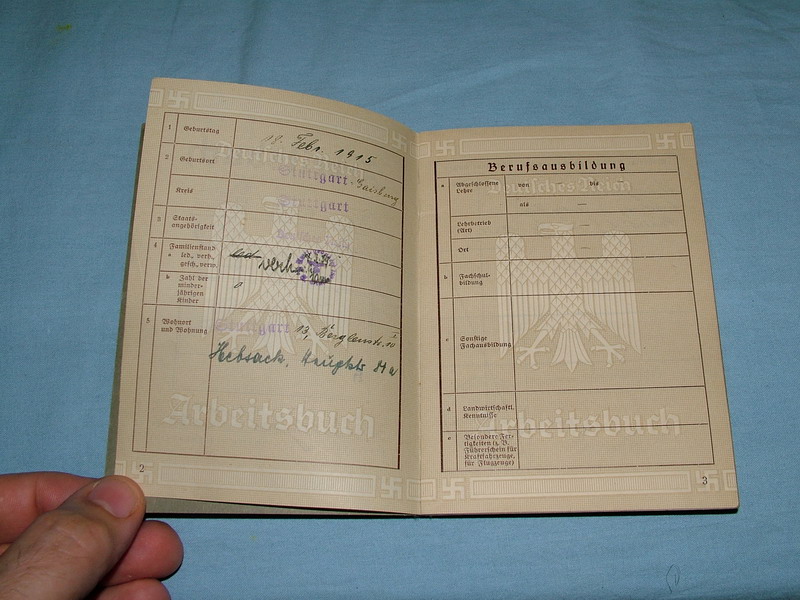 1 Geburtstag 19. Febr. 1915
2 Geburtsort Stuttgart-Gaisburg
Kreis Stuttgart
3 Staats-
angehörigkeit
4 Familienstand
a led., verh.,
gesch., verw. led verh.
b Zahl der
minder-
jährigen
Kinder 0
5 Wohnort
und Wohnung Stuttgart 13,
Hebsack, Hauptstr. 84a
Deutsches Reich
Arbeitsbuch
2
Berufsausbildung
a Abgeschlossene
Lehre von bis
als —
Lehrbetrieb
(Art) —
Ort —
b Fachschul-
bildung
c Sonstige
Fachausbildung
d Landwirtschaftl.
Kenntnisse
e Besondere Fer-
tigkeiten (z. B.
Führerschein für
Kraftfahrzeuge,
für Flugzeuge)
Deutsches Reich
Arbeitsbuch
3